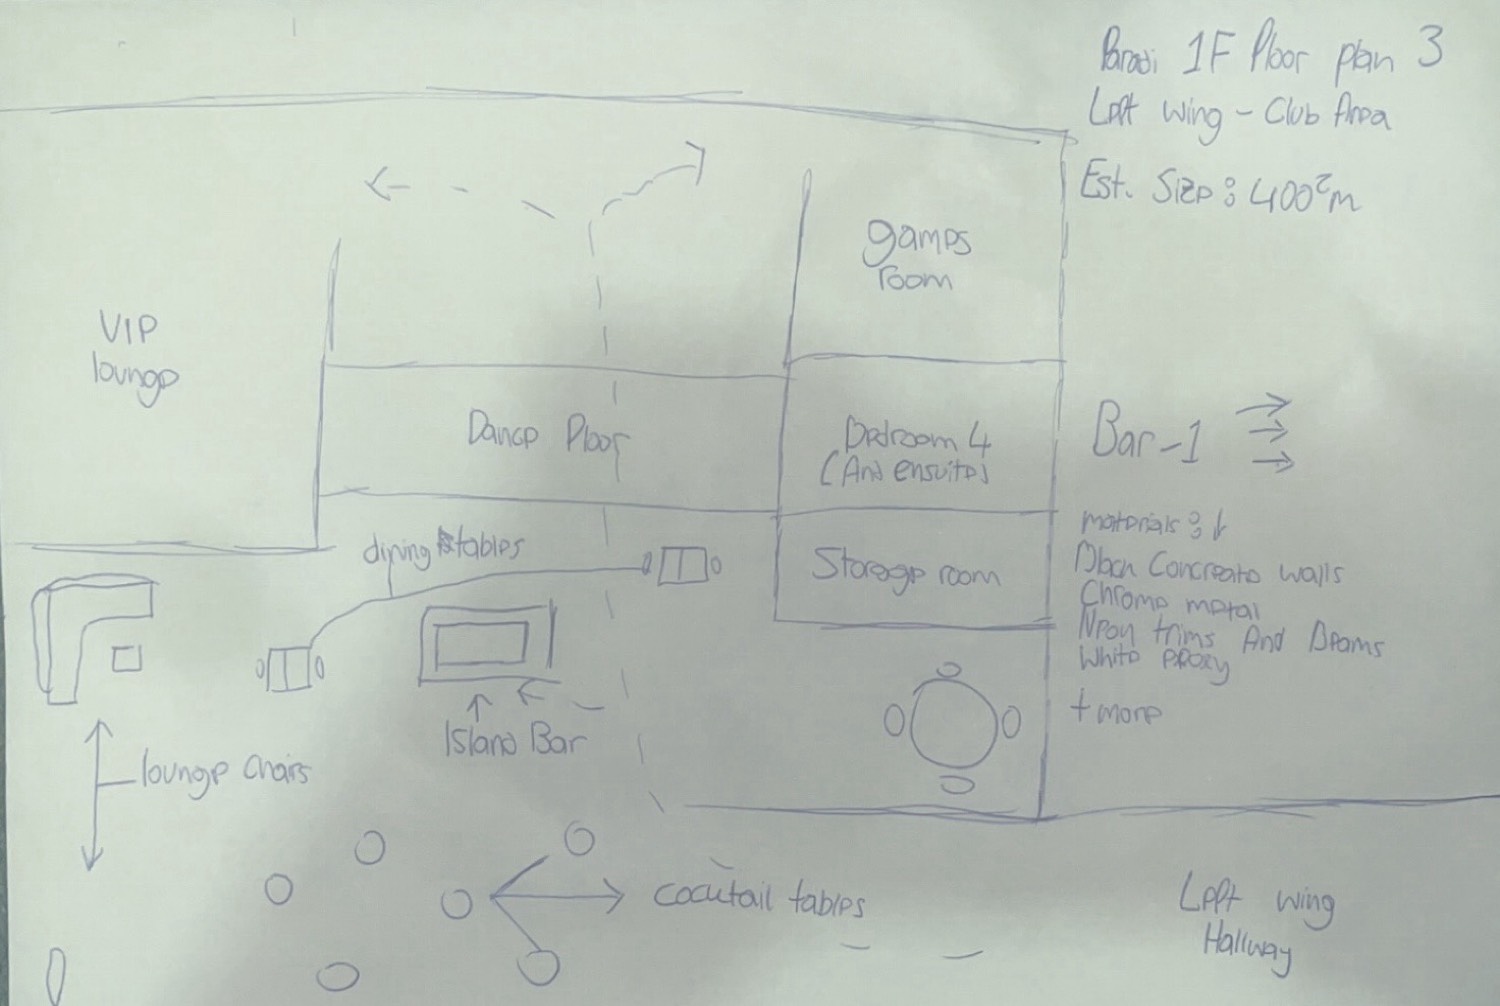 Paradi 1F Floor plan 3
Left wing - Club Area
Est. Size: 400²m
games
room
VIP
lounge
Dance Floor
Bedroom 4
(And ensuite)
Bar-1
Storage room
dining tables
materials:
Black Concreate walls
Chrome metal
Neon trims And Beams
White epoxy
+ more
Island Bar
lounge chairs
cocktail tables
Left wing
Hallway